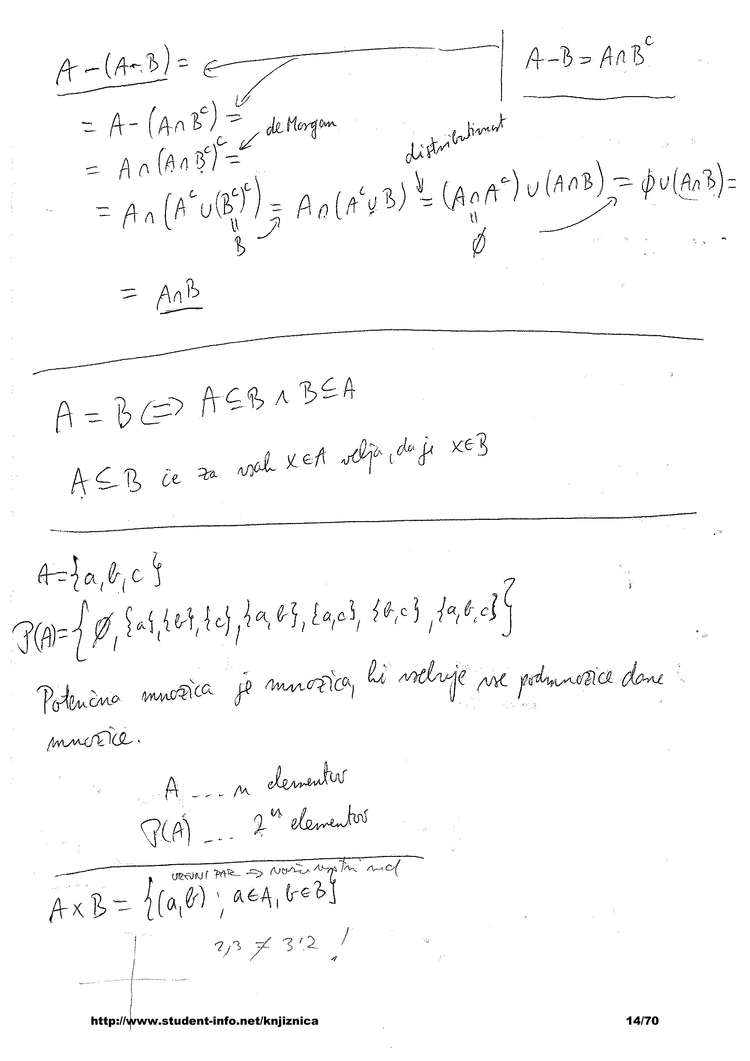 A - (A - B) =
A - B = A ∩ Bᶜ
= A - (A ∩ Bᶜ) =
de Morgan
= A ∩ (A ∩ Bᶜ)ᶜ =
distributivnost
= A ∩ (Aᶜ ∪ (Bᶜ)ᶜ) = A ∩ (Aᶜ ∪ B) = (A ∩ Aᶜ) ∪ (A ∩ B) = ∅ ∪ (A ∩ B) =
B
∅
= A ∩ B
A = B ⇔ A ⊆ B ∧ B ⊆ A
A ⊆ B če za vsak x ∈ A velja, da je x ∈ B
A = {a, b, c}
P(A) = {∅, {a}, {b}, {c}, {a, b}, {a, c}, {b, c}, {a, b, c}}
Potenčna množica je množica, ki vsebuje vse podmnožice dane
množice.
A ... n elementov
P(A) ... 2ⁿ elementov
UREJENI PAR ⇒ red
A × B = {(a, b) ; a ∈ A, b ∈ B}
2,3 ≠ 3,2 !
http://www.student-info.net/knjiznica
14/70